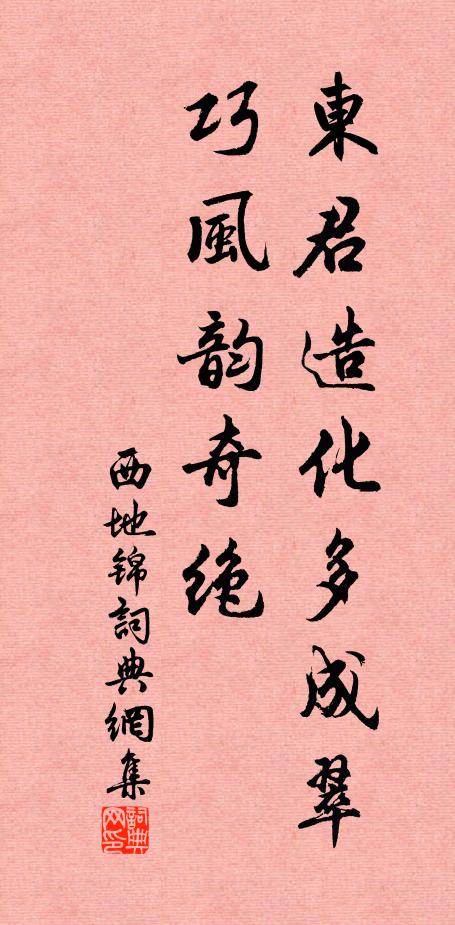 東君造化多成翠
巧風韵奇绝
西地锦詞典網集
詞典
网印